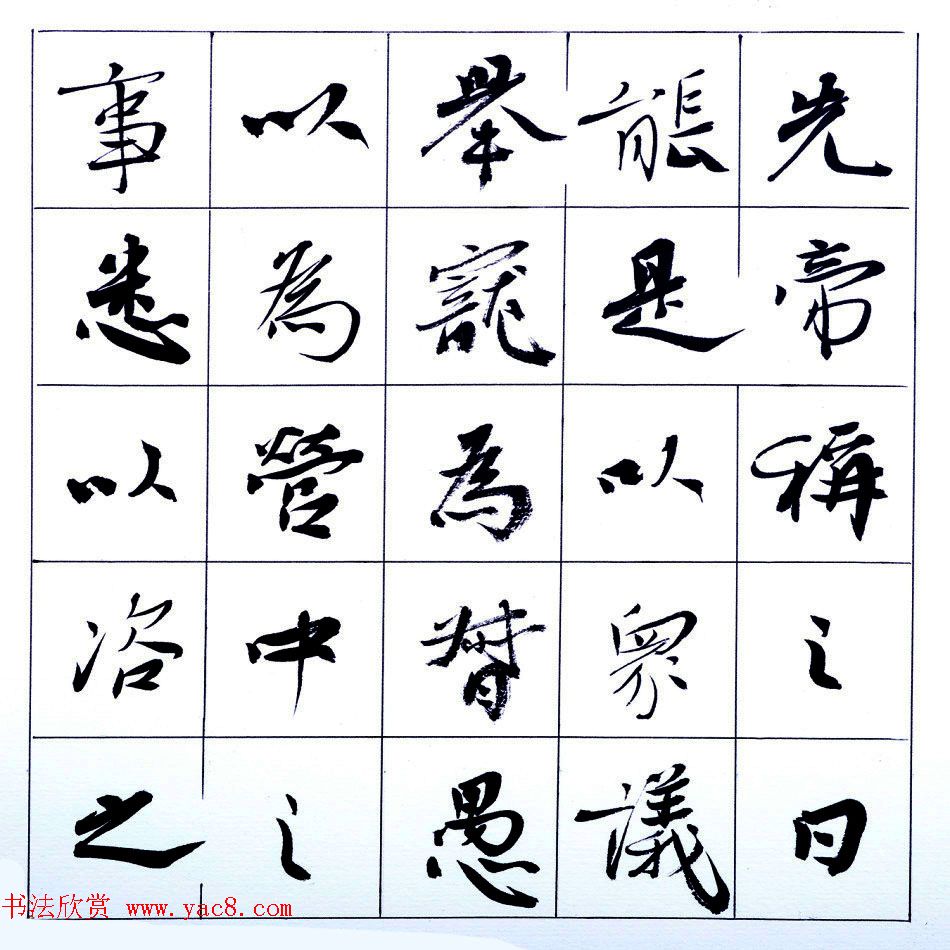 先帝稱之曰
能是以眾議
舉寵為督愚
以為營中之
事悉以咨之
书法欣赏 www.yac8.com